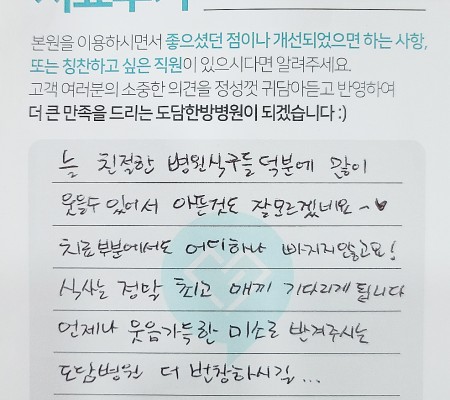 본원을 이용하시면서 좋으셨던 점이나 개선되었으면 하는 사항,
또는 칭찬하고 싶은 직원이 있으시다면 알려주세요.
고객 여러분의 소중한 의견을 정성껏 귀담아듣고 반영하여
더 큰 만족을 드리는 도담한방병원이 되겠습니다 :)
늘 친절한 병원식구들 덕분에 많이
웃을수 있어서 아픈것도 잘모르겠네요~♥
치료부분에서도 어디하나 빠지지않고요!
식사는 정말 최고 매끼 기다리게 됩니다
언제나 웃음가득한 미소로 반겨주시는
도담병원 더 번창하시길...